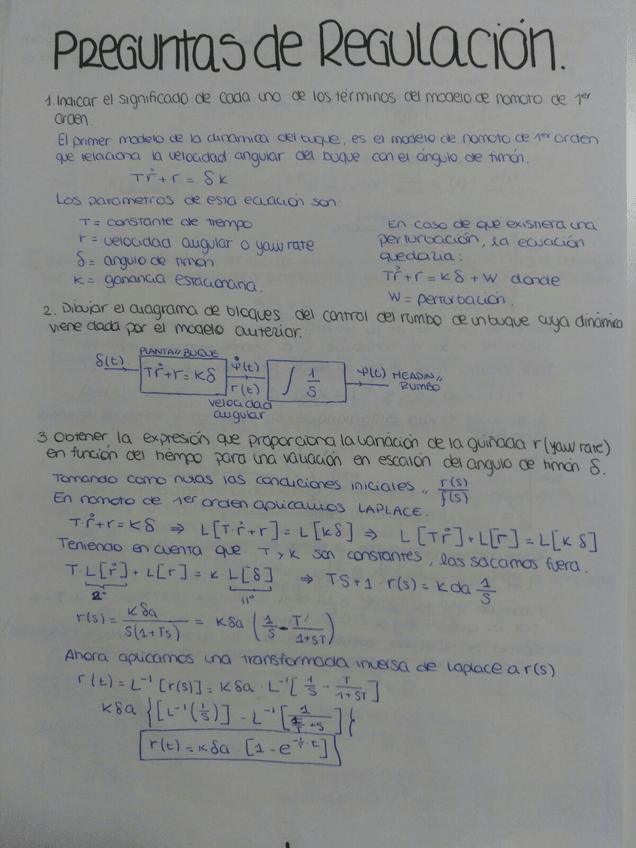 PREGUNTAS DE REGULACIÓN.
1. Indicar el significado de cada uno de los términos del modelo de nomoto de 1er
orden.
El primer modelo de la dinámica del buque, es el modelo de nomoto de 1er orden
que relaciona la velocidad angular del buque con el ángulo de timón.
Tṙ + r = δk
Los parametros de esta ecuación son:
T = constante de tiempo
r = velocidad augular o yaw rate
δ = angulo de timón
K = ganancia estacionaria.
En caso de que existiera una
perturbación, la ecuación
quedaría:
Tṙ + r = Kδ + W donde
W = perturbación.
2. Dibujar el diagrama de bloques del control del rumbo de un buque cuya dinámica
viene dada por el modelo anterior.
PLANTA // BUQUE
δ(t) Tṙ + r = Kδ ψ̇(t) r(t) ∫ 1/S ψ(t) HEADING // RUMBO
velocidad
augular
3. Obtener la expresión que proporciona la variación de la guiñada r (yaw rate)
en función del tiempo para una variación en escalón del angulo de timón δ.
Tomando como nulas las condiciones iniciales // r(s)/f(s)
En nomoto de 1er orden aplicamos LAPLACE.
T·ṙ + r = Kδ ⇒ L[T·ṙ + r] = L[kδ] ⇒ L[Tṙ] + L[r] = L[K δ]
Teniendo en cuenta que T y K son constantes, las sacamos fuera.
T·L[ṙ] + L[r] = K·L[δ] ⇒ TS+1·r(s) = K da 1/S
r(s) = Kδa / S(1+Ts) = Kδa (1/S - T/1+ST)
Ahora aplicamos una transformada inversa de Laplace a r(s)
r(t) = L⁻¹[r(s)] = Kδa · L⁻¹[1/S - T/1+ST]
Kδa {[L⁻¹(1/S)] - L⁻¹[1/(1/T + S)]}
r(t) = Kδa · [1 - e^(-1/T · t)]